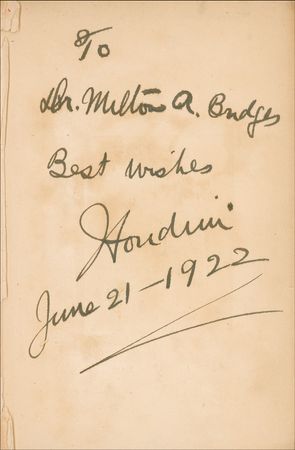 To
Dr. Milton A. Bridges
Best wishes
Houdini
June 21-1922